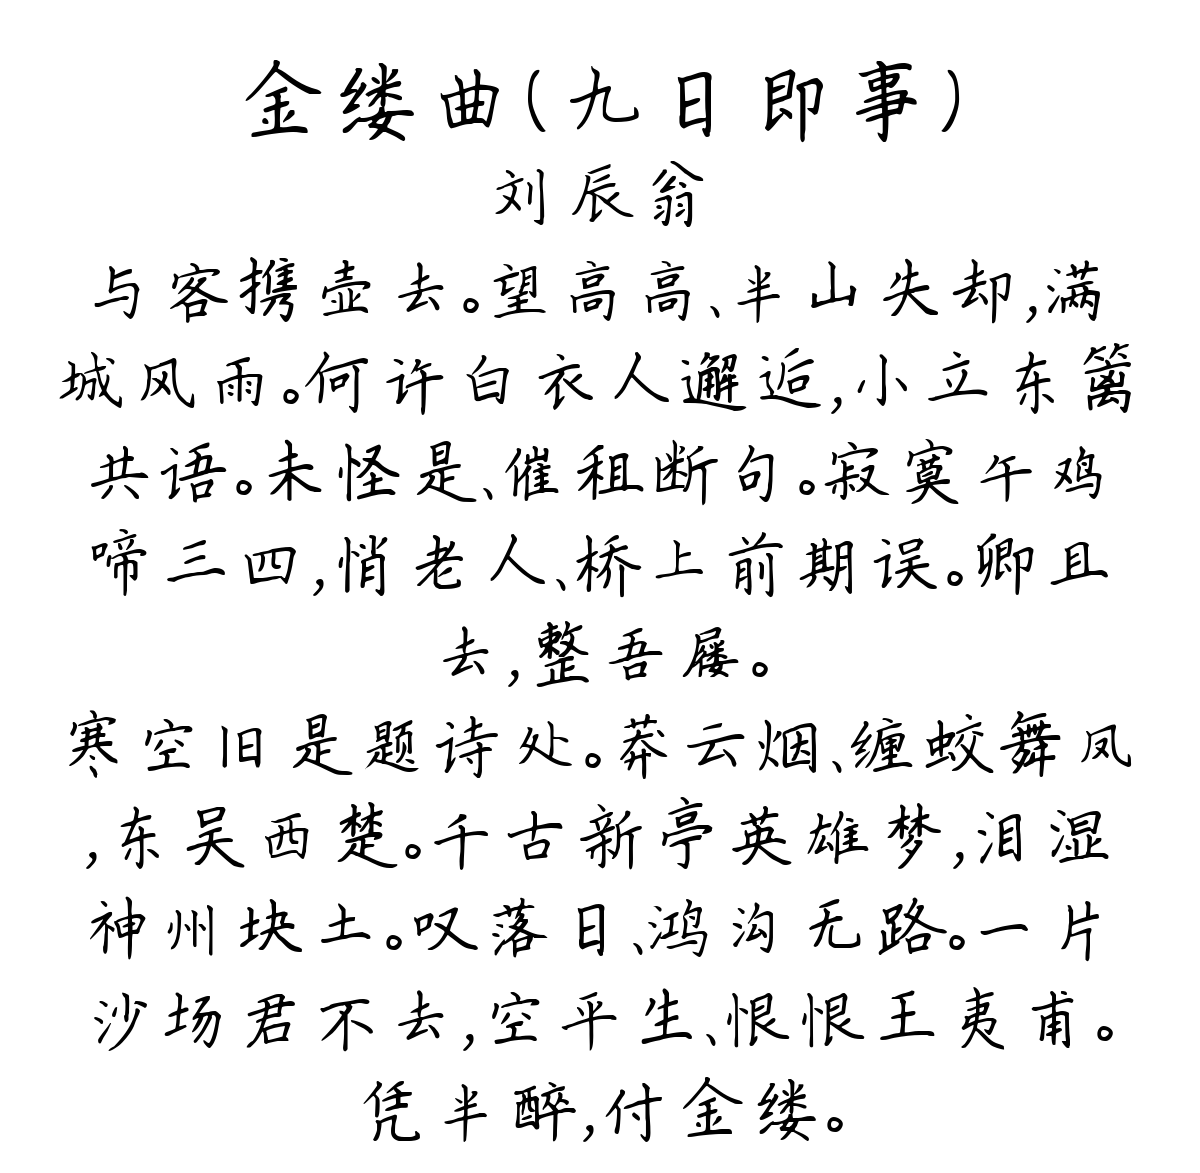 金缕曲(九日即事)
刘辰翁
与客携壶去。望高高、半山失却,满
城风雨。何许白衣人邂逅,小立东篱
共语。未怪是、催租断句。寂寞午鸡
啼三四,悄老人、桥上前期误。卿且
去,整吾屦。
寒空旧是题诗处。莽云烟、缠蛟舞凤
,东吴西楚。千古新亭英雄梦,泪湿
神州块土。叹落日、鸿沟无路。一片
沙场君不去,空平生、恨恨王夷甫。
凭半醉,付金缕。